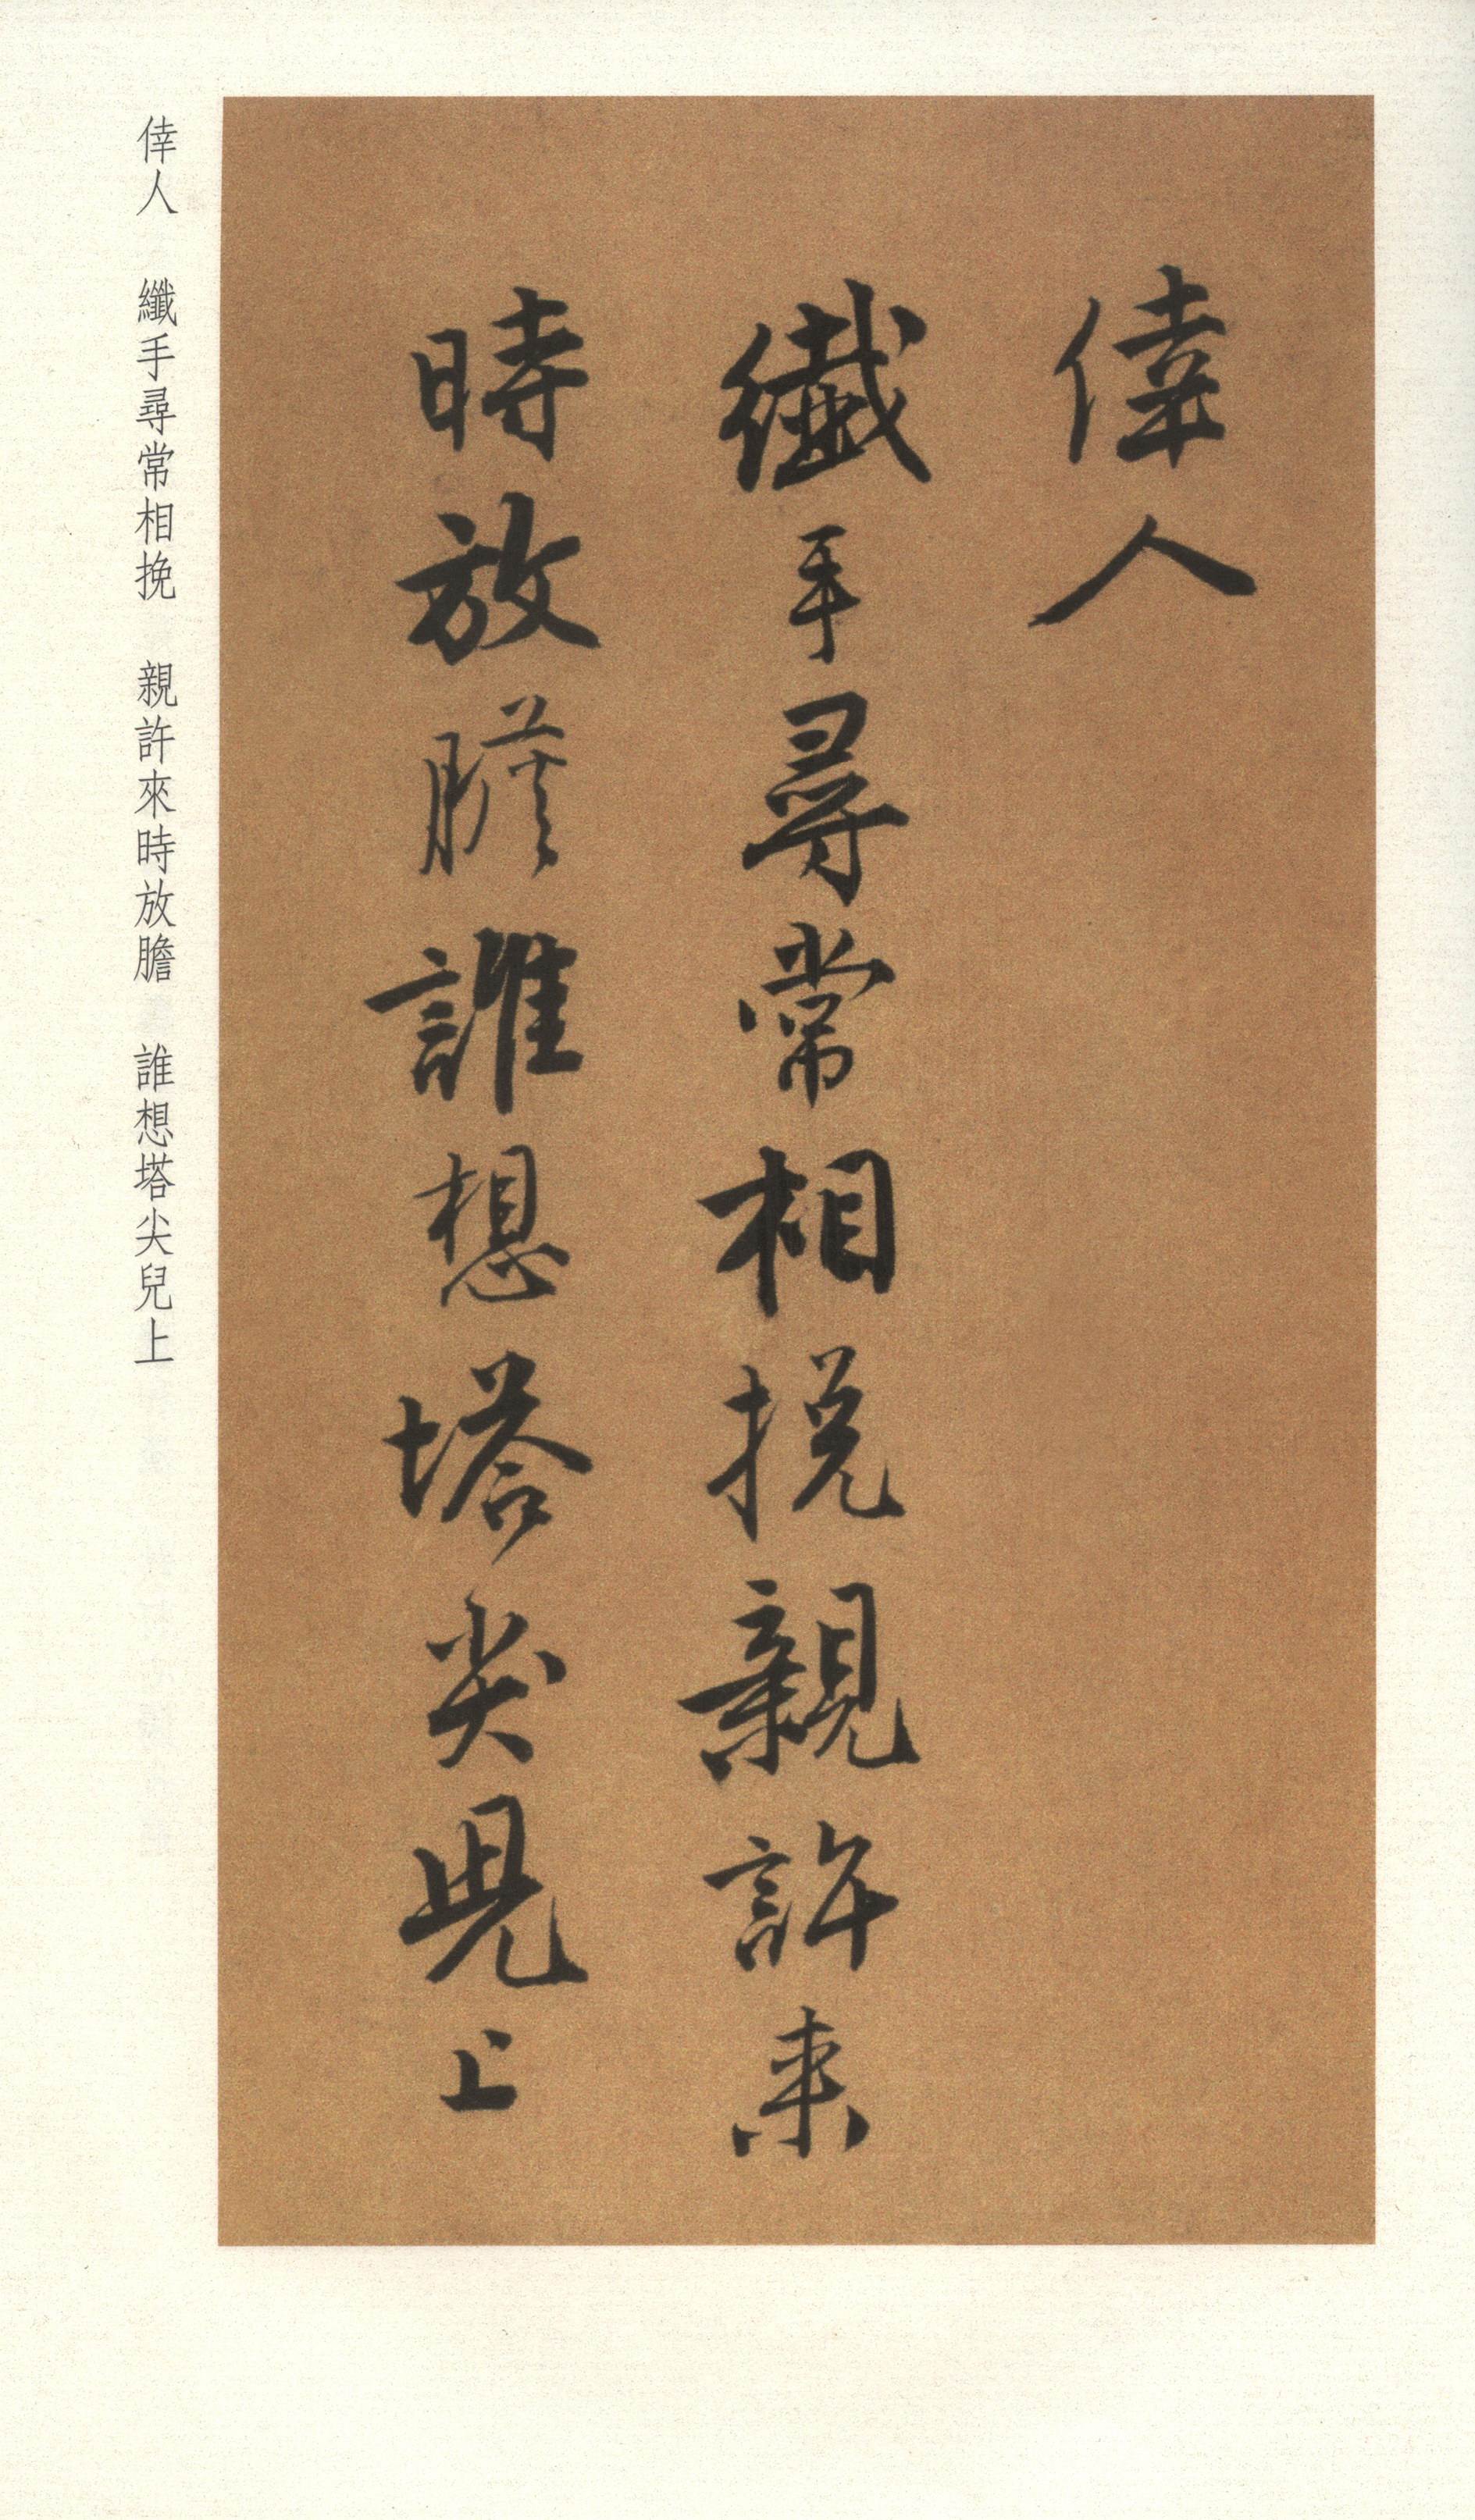 倖人
纖手尋常相挽親許来
時放膽誰想塔尖兒上
倖人　纖手尋常相挽　親許來時放膽　誰想塔尖兒上